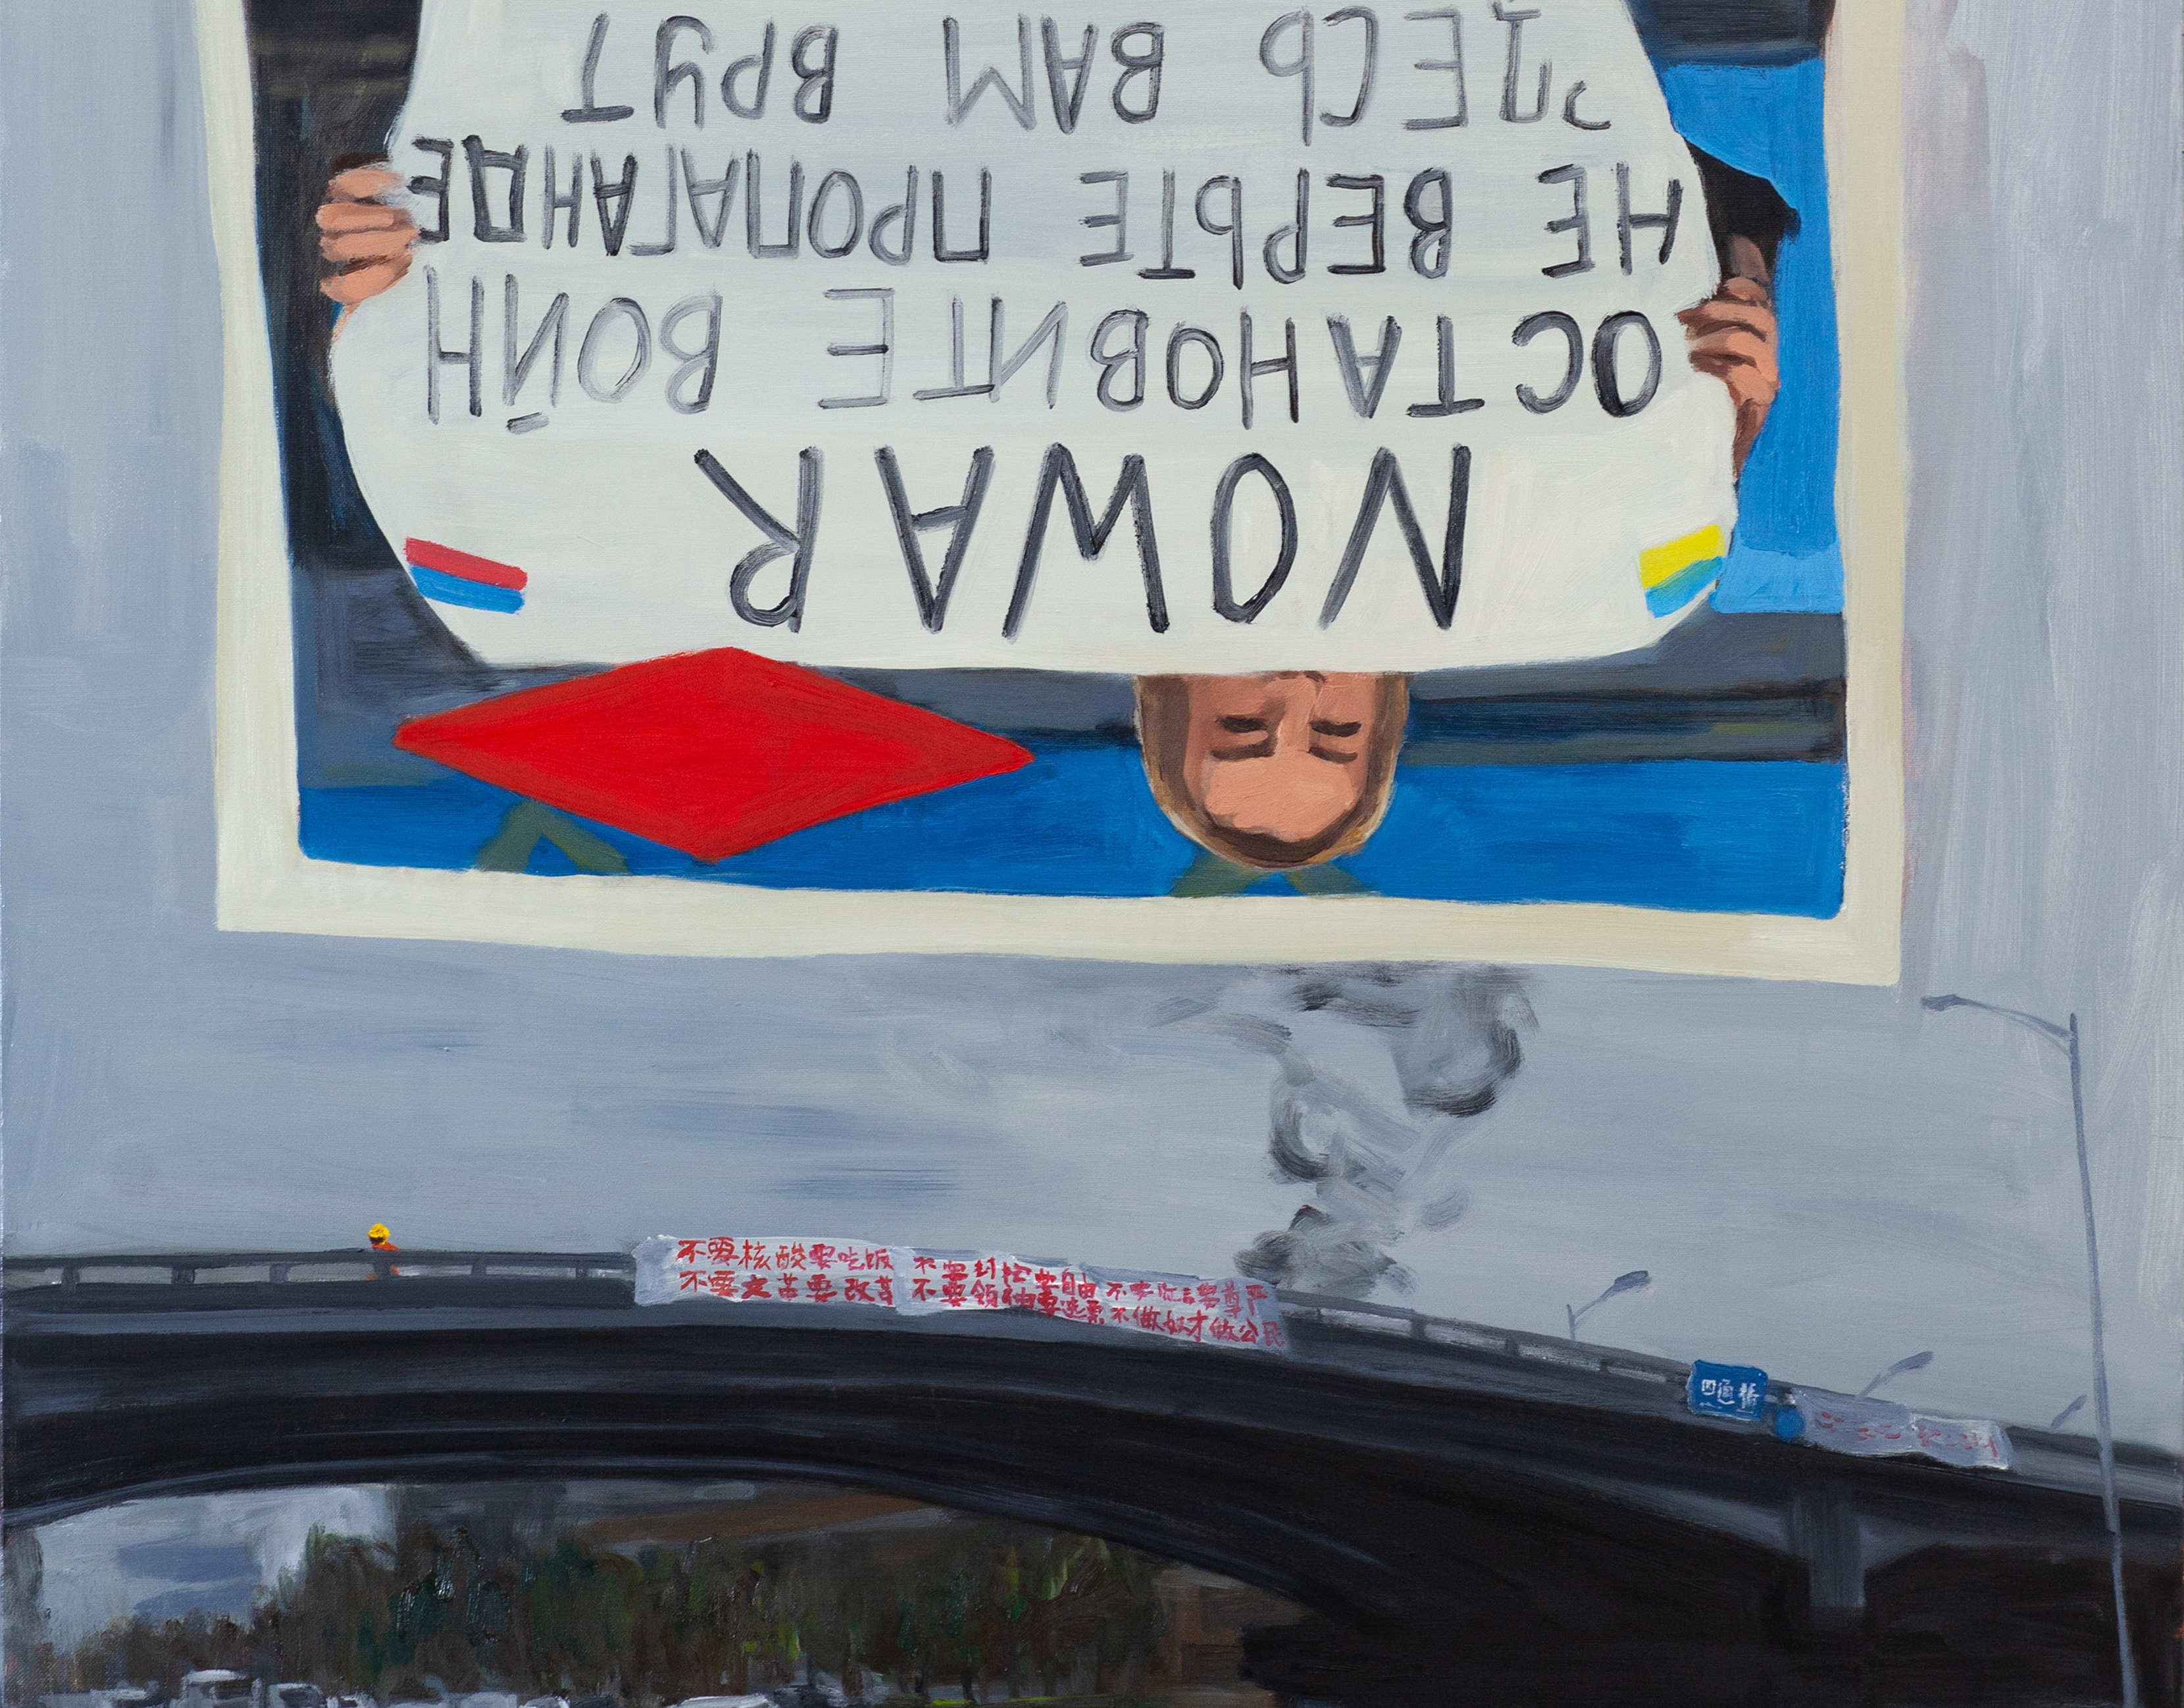 NOWAR
ОСТАНОВИТЕ ВОЙН
НЕ ВЕРЬТЕ ПРОПАГАНДЕ
ЗДЕСЬ ВАМ ВРУТ
不要核酸要吃饭 不要封控要自由 不要谎言要尊严
不要文革要改革 不要领袖要选票 不做奴才做公民
四通桥